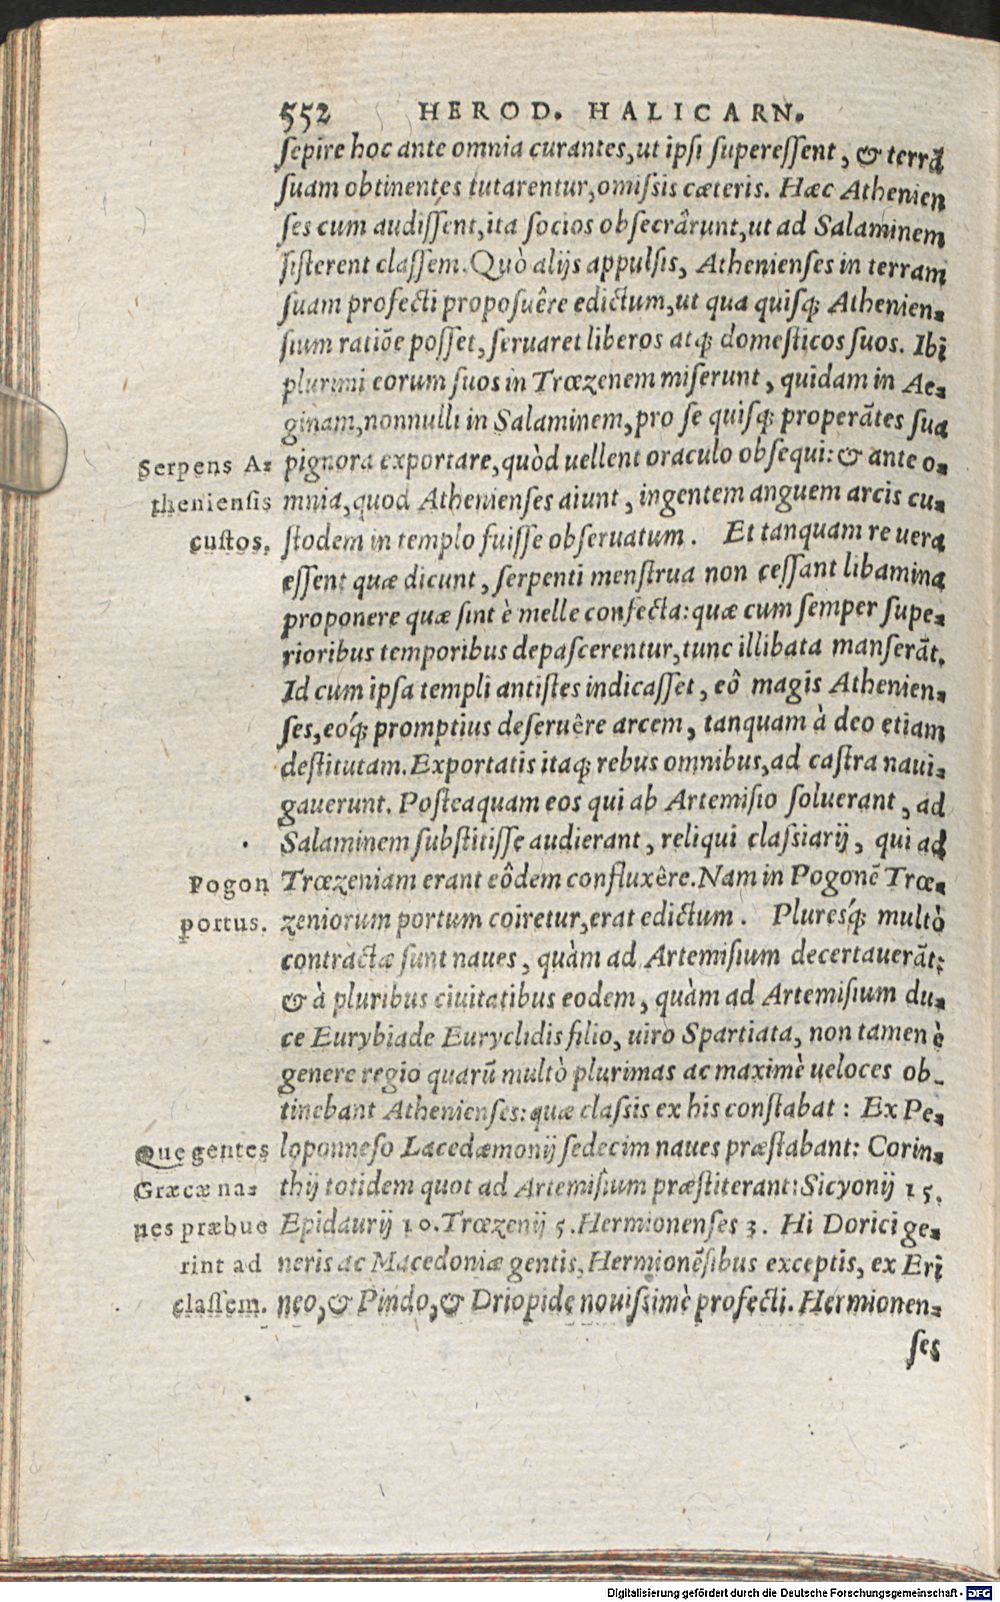 552 HEROD. HALICARN.
ſepire hoc ante omnia curantes, ut ipſi ſupereſſent, & terrã
ſuam obtinentes tutarentur, omiſsis cæteris. Hæc Athenien
ſes cum audiſſent, ita ſocios obſecrârunt, ut ad Salaminem
ſiſterent claſſem. Quò alijs appulſis, Athenienſes in terram
ſuam profecti propoſuêre edictum, ut qua quiſq; Athenien-
ſium ratiõe poſſet, ſeruaret liberos atq; domeſticos ſuos. Ibi
plurimi eorum ſuos in Trœzenem miſerunt, quidam in Ae-
ginam, nonnulli in Salaminem, pro ſe quiſq; properãtes ſua
Serpens A-
pignora exportare, quòd uellent oraculo obſequi: & ante o-
thenienſis
mnia, quod Athenienſes aiunt, ingentem anguem arcis cu-
cuſtos.
ſtodem in templo fuiſſe obſeruatum. Et tanquam re uera
eſſent quæ dicunt, ſerpenti menſtrua non ceſſant libamina
proponere quæ ſint è melle confecta: quæ cum ſemper ſupe-
rioribus temporibus depaſcerentur, tunc illibata manſerãt.
Id cum ipſa templi antiſtes indicaſſet, eô magis Athenien-
ſes, eóq; promptius deſeruêre arcem, tanquam à deo etiam
deſtitutam. Exportatis itaq; rebus omnibus, ad caſtra naui-
gauerunt. Poſteaquam eos qui ab Artemiſio ſoluerant, ad
Salaminem ſubſtitiſſe audierant, reliqui claſsiarij, qui ad
Pogon
Trœzeniam erant eôdem confluxêre. Nam in Pogonẽ Trœ-
portus.
zeniorum portum coiretur, erat edictum. Plureſq́; multò
contractæ ſunt naues, quàm ad Artemiſium decertauerãt:
& à pluribus ciuitatibus eodem, quàm ad Artemiſium du-
ce Eurybiade Euryclidis filio, uiro Spartiata, non tamen è
genere regio quarũ multò plurimas ac maximè ueloces ob-
tinebant Athenienſes: quæ claſsis ex his conſtabat: Ex Pe-
Quę gentes
loponneſo Lacedæmonij ſedecim naues præſtabant: Corin-
Græcæ na-
thij totidem quot ad Artemiſium præſtiterant: Sicyonij 15.
ues præbue
Epidaurij 10. Trœzenij 5. Hermionenſes 3. Hi Dorici ge-
rint ad
neris ac Macedoniæ gentis, Hermionẽſibus exceptis, ex Eri
claſſem.
neo, & Pindo, & Driopide nouiſsimè profecti. Hermionen-
ſes
Digitalisierung gefördert durch die Deutsche Forschungsgemeinschaft - DFG